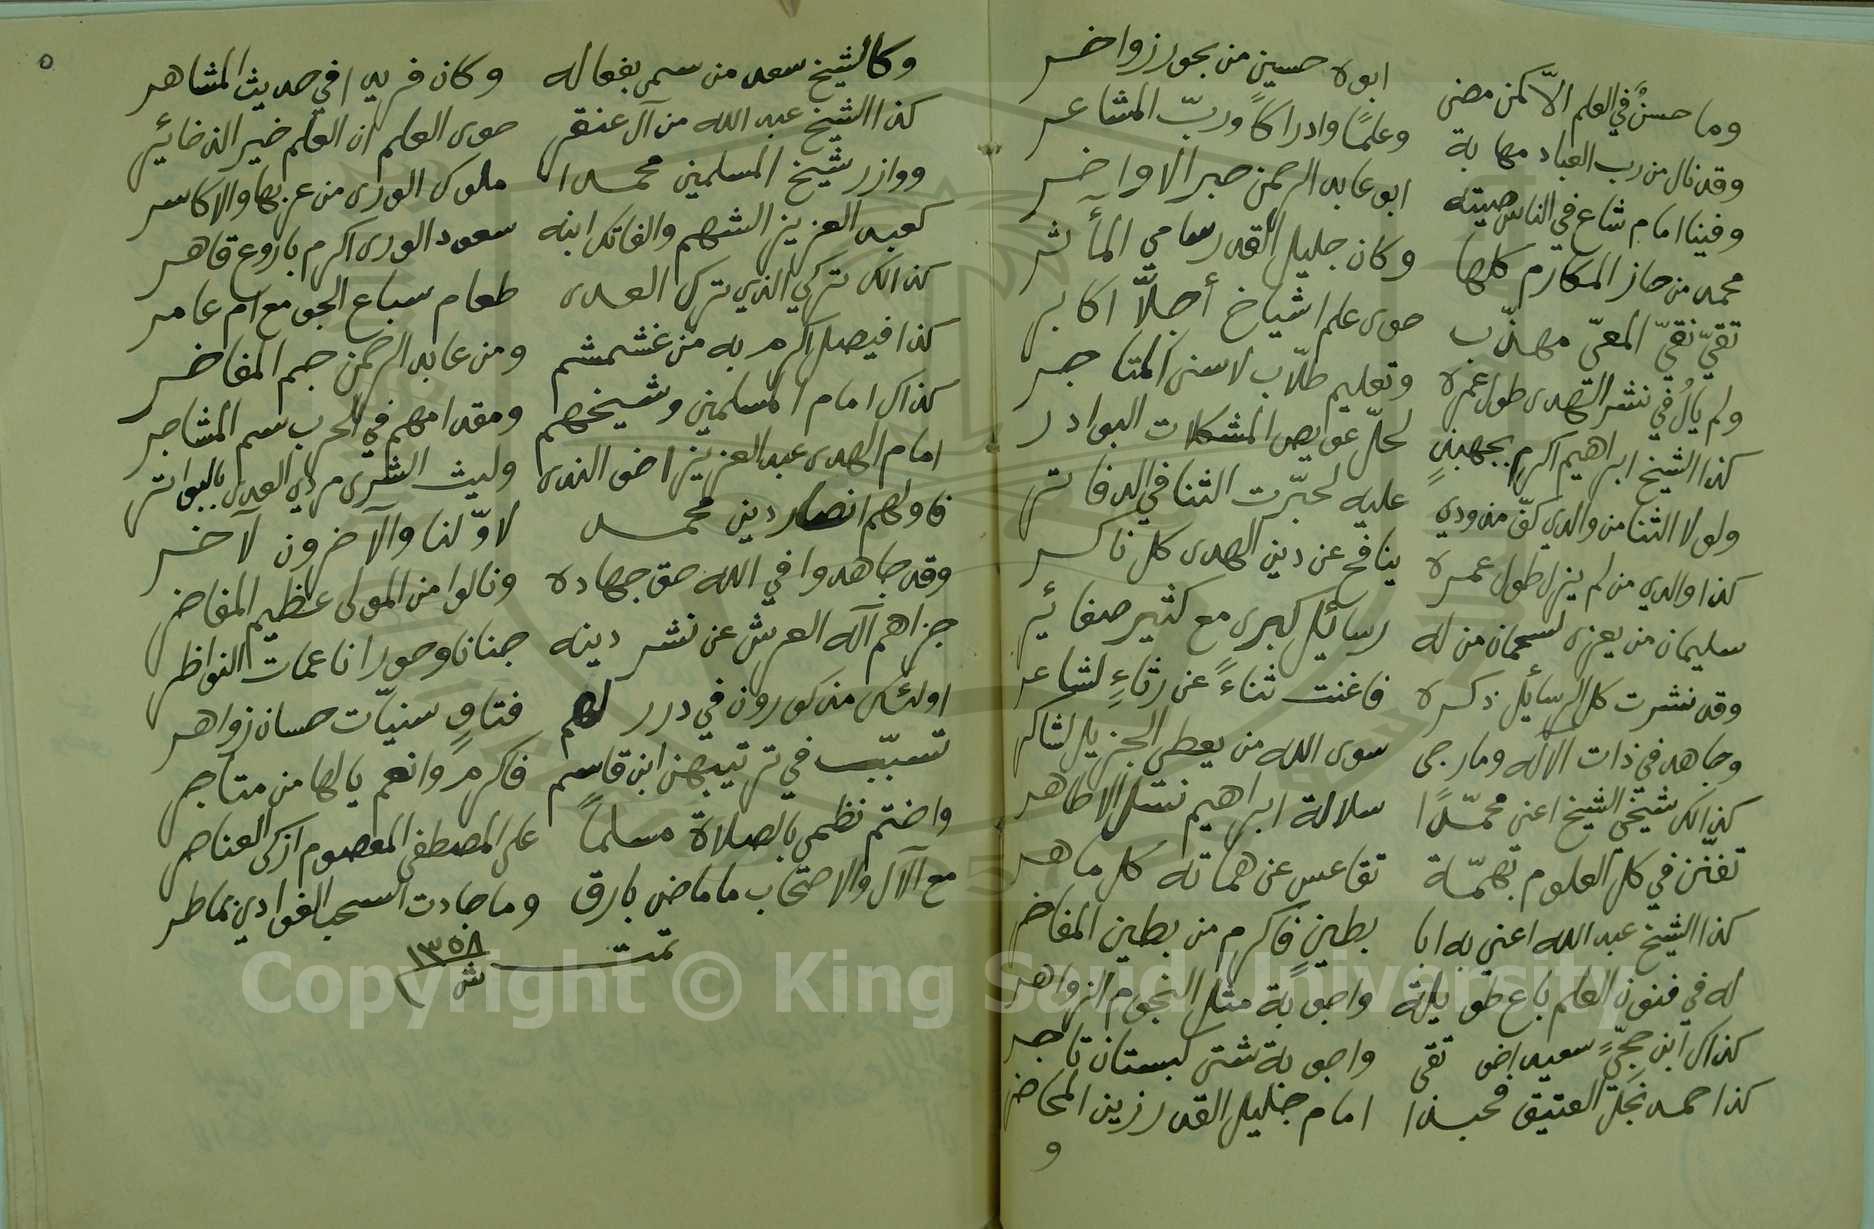 وما حسنٌ في العلم الّا كمن مضى ابوه حسين من بحور زواخر
وقد نال من رب العباد مهابة وعلمًا وادراكاً وربّ المشاعر
وفينا امام شاع في الناس صيته ابو عابد الرحمن حبر الاواخر
محمد من حاز المكارم كلها وكان جليل القدر سامي المآثر
تقيّ نقيّ المعيّ مهذّب حوى علم اشياخ أجلّا اكابر
ولم يألُ في نشر الهدى طول عمره وتعليم طلّاب لاسنى المتاجر
كذا الشيخ ابراهيم اكرم بجهبذٍ لحلّ عويص المشكلات البوادر
ولولا الثنا من والدي كفّ مذودي عليه لحبّرت الثنا في الدفاتر
كذا والدي من لم يزل طول عمره ينافح عن دين الهدى كل ناكر
سليمان من يعزى لسحمان من له رسائل كبرى مع كثير صغائر
وقد نشرت كل الرسائل ذكره فاغنت ثناءً عن رثاءٍ لشاعر
وجاهد في ذات الاله وما رجى سوى الله من يعطي الجزيل لشاكر
كذلك شيخي الشيخ اعني محمّدًا سلالة ابراهيم نسل الاطاهر
تفنّن في كل العلوم بهمّة تقاعس عن هماته كل ماهر
كذا الشيخ عبد الله اعني به ابا بطين فاكرم من بطين المفاخر
له في فنون العلم باع طويلة واجوبة مثل النجوم الزواهر
كذاك ابن حجّيٍ سعيد اخو تقى واجوبة شتى كبستان تاجر
كذا حمد نجل العتيق فحبذا امام جليل القدر زين المحاضر
و
٥
وكالشيخ سعد من سمى بفعاله وكان فريدا في حديث المشاهر
كذا الشيخ عبد الله من آل عنقر حوى العلم ان العلم خير الذخائر
ووازر شيخ المسلمين محمدا ملوك الورى من عربها والاكاسر
كعبد العزيز الشهم والفاتك ابنه سعود الورى اكرم باروع قاهر
كذلك تركي الذي ترك العدى طعام سباع الجو مع ام عامر
كذا فيصل اكرم به من غشمشم ومن عابد الرحمن جم المفاخر
كذاك امام المسلمين وشيخهم ومقدامهم في الحرب سم المشاجر
امام الهدى عبد العزيز اخو الندى وليث الشرى مردي العدى بالبواتر
فاولهم انصار دين محمد لاوّلنا والآخرون لآخر
وقد جاهدوا في الله حق جهاده ونالوا من المولى عظيم المفاخر
جزاهم اله العرش عن نشر دينه جنانا وحورا ناعمات النواظر
اولئك مذكورون في درر لهم فتاوٍ سنيّات حسان زواهر
تسبّب في ترتيبهن ابن قاسم فاكرم وانعم يا لها من متاجر
واختم نظمي بالصلاة مسلماً على المصطفى المعصوم ازكى العناصر
مع الآل والاصحاب ما ماض بارق وما جادت السحب الغوادي بماطر
تمت ١٣٥٨
ش
Copyright © King Saud University